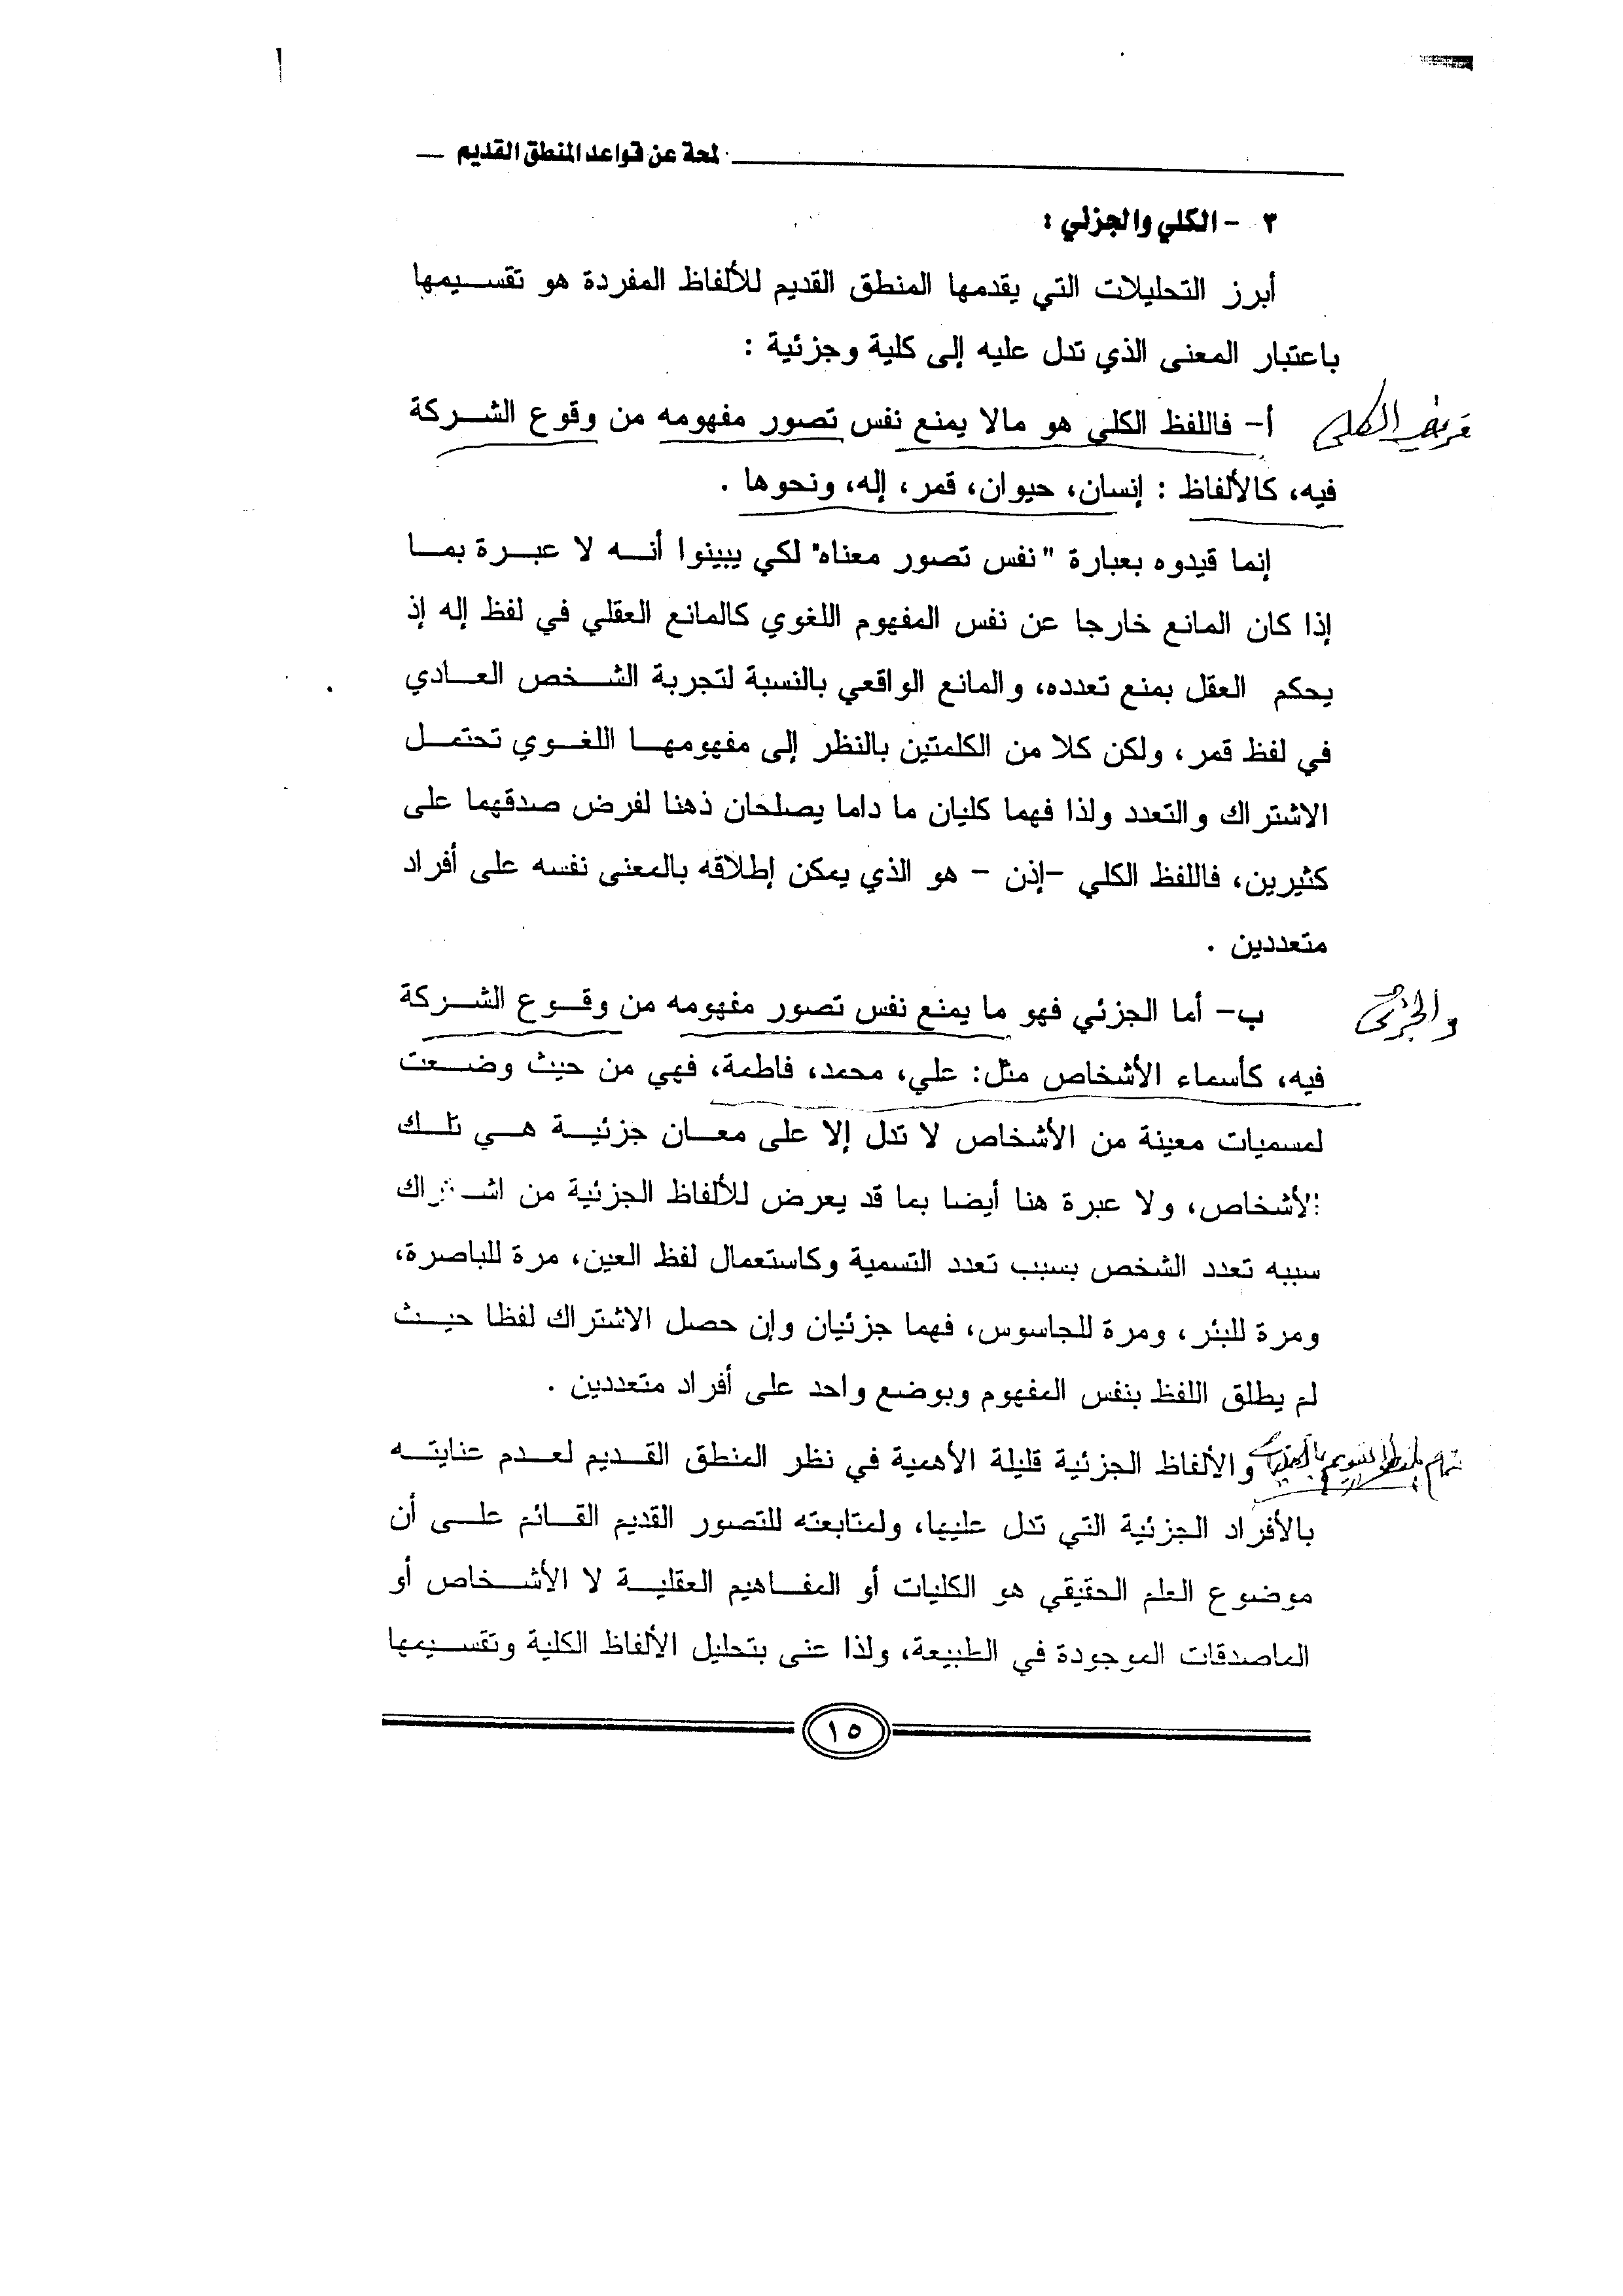 لمحة عن قواعد المنطق القديم
٣ - الكلي والجزئي :
أبرز التحليلات التي يقدمها المنطق القديم للألفاظ المفردة هو تقسيمها
باعتبار المعنى الذي تدل عليه إلى كلية وجزئية :
أ- فاللفظ الكلي هو مالا يمنع نفس تصور مفهومه من وقوع الشركة
تعريف الكلى
فيه، كالألفاظ : إنسان، حيوان، قمر، إله، ونحوها .
إنما قيدوه بعبارة "نفس تصور معناه" لكي يبينوا أنه لا عبرة بما
إذا كان المانع خارجا عن نفس المفهوم اللغوي كالمانع العقلي في لفظ إله إذ
يحكم العقل بمنع تعدده، والمانع الواقعي بالنسبة لتجربة الشخص العادي
في لفظ قمر، ولكن كلا من الكلمتين بالنظر إلى مفهومها اللغوي تحتمل
الاشتراك والتعدد ولذا فهما كليان ما داما يصلحان ذهنا لفرض صدقهما على
كثيرين، فاللفظ الكلي -إذن - هو الذي يمكن إطلاقه بالمعنى نفسه على أفراد
متعددين .
ب- أما الجزئي فهو ما يمنع نفس تصور مفهومه من وقوع الشركة
والجزئى
فيه، كأسماء الأشخاص مثل: علي، محمد، فاطمة، فهي من حيث وضعت
لمسميات معينة من الأشخاص لا تدل إلا على معان جزئية هي تلك
الأشخاص، ولا عبرة هنا أيضا بما قد يعرض للألفاظ الجزئية من اشتراك
سببه تعدد الشخص بسبب تعدد التسمية وكاستعمال لفظ العين، مرة للباصرة،
ومرة للبئر، ومرة للجاسوس، فهما جزئيان وإن حصل الاشتراك لفظا حيث
لم يطلق اللفظ بنفس المفهوم وبوضع واحد على أفراد متعددين .
والألفاظ الجزئية قليلة الأهمية في نظر المنطق القديم لعدم عنايته
بالأفراد الجزئية التي تدل عليها، ولمتابعته للتصور القديم القائم على أن
موضوع العلم الحقيقي هو الكليات أو المفاهيم العقلية لا الأشخاص أو
الماصدقات الموجودة في الطبيعة، ولذا عنى بتحليل الألفاظ الكلية وتقسيمها
١٥